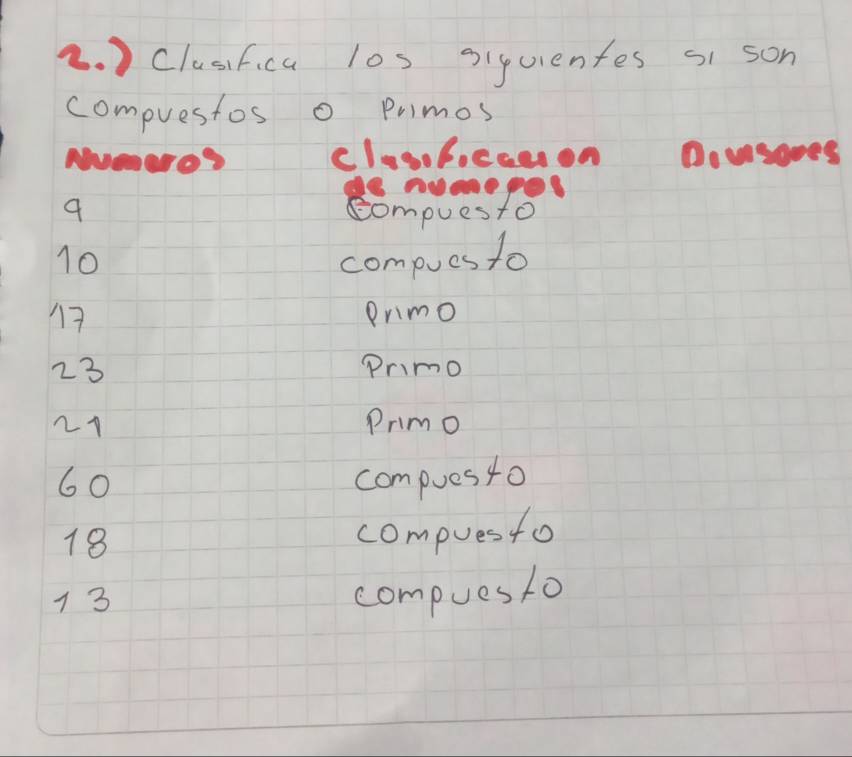 2.) Clasifica los siguientes si son
compuestos o Primos
Numeros Clasificacion Divisores
de numeros
9 Compuesto
10 compuesto
17 Primo
23 Primo
21 Primo
60 compuesto
18 compuesto
13 compuesto